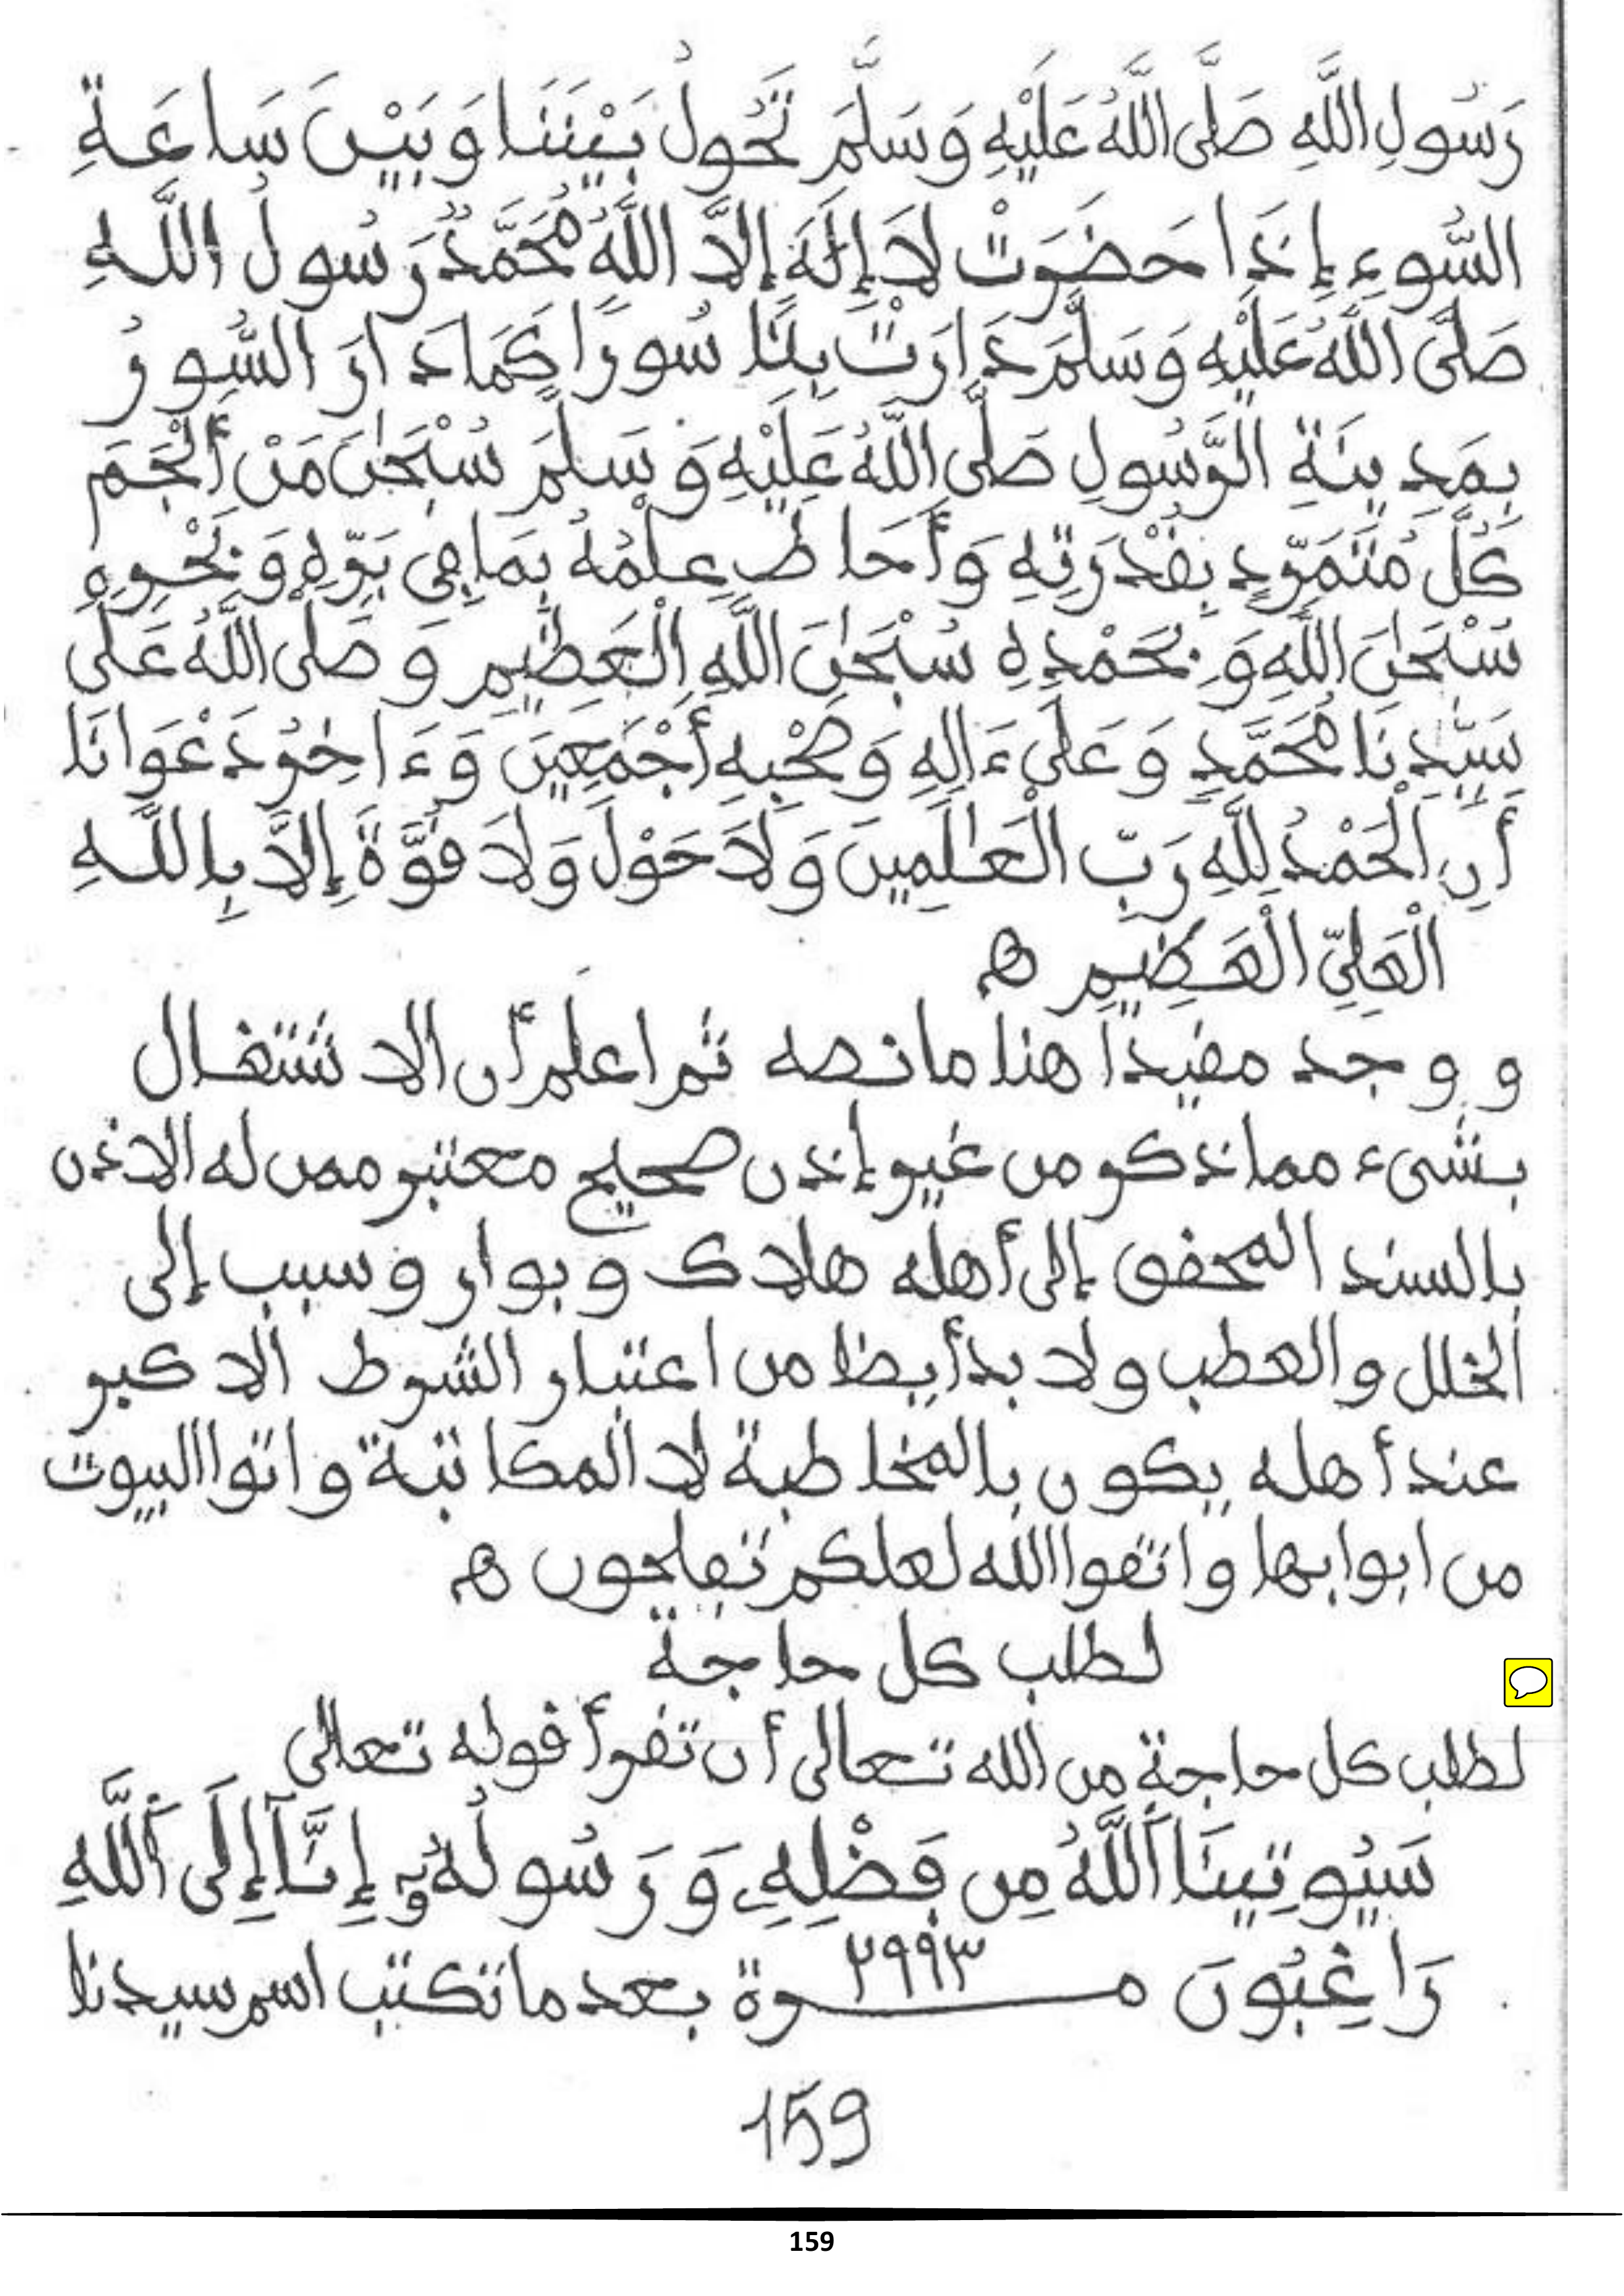 رَسُولِ اللَّهِ صَلَّى اللَّهُ عَلَيْهِ وَسَلَّمَ تَحُولُ بَيْنَنَا وَبَيْنَ سَاعَةِ
السُّوءِ إِذَا حَضَرَتْ لَا إِلَهَ إِلَّا اللَّهُ مُحَمَّدٌ رَسُولُ اللَّهِ
صَلَّى اللَّهُ عَلَيْهِ وَسَلَّمَ دَارَتْ بِنَا سُورًا كَمَا دَارَ السُّورُ
بِمَدِينَةِ الرَّسُولِ صَلَّى اللَّهُ عَلَيْهِ وَسَلَّمَ سُبْحَٰنَ مَنْ أَلْجَمَ
كُلَّ مُتَمَرِّدٍ بِقُدْرَتِهِ وَأَحَاطَ عِلْمُهُ بِمَا فِي بَرِّهِ وَبَحْرِهِ
سُبْحَٰنَ اللَّهِ وَبِحَمْدِهِ سُبْحَٰنَ اللَّهِ الْعَظِيمِ وَصَلَّى اللَّهُ عَلَى
سَيِّدِنَا مُحَمَّدٍ وَعَلَى ءَالِهِ وَصَحْبِهِ أَجْمَعِينَ وَءَاخِرُ دَعْوَانَا
أَنِ الْحَمْدُ لِلَّهِ رَبِّ الْعَٰلَمِينَ وَلَا حَوْلَ وَلَا قُوَّةَ إِلَّا بِاللَّهِ
الْعَلِيِّ الْعَظِيمِ ه
ووجد مفيدا هنا ما نصه ثم اعلم أن الاشتغال
بشيء مما ذكر من غير إذن صحيح معتبر ممن له الاذن
بالسند المحقق إلى أهله هلاك وبوار وسبب إلى
الخلل والعطب ولا بد أيضا من اعتبار الشرط الاكبر
عند أهله يكون بالمخاطبة لا المكاتبة واتوا البيوت
من ابوابها واتقوا الله لعلكم تفلحون ه
لطلب كل حاجة
لطلب كل حاجة من الله تعالى أن تقرأ قوله تعالى
سَيُوتِينَا اَللَّهُ مِن فَضْلِهِۦ وَرَسُولُهُۥ إِنَّآ إِلَى اَللَّهِ
رَاغِبُونَ مرة ٢٩٩٣ بعد ما تكتب اسم سيدنا
159
159